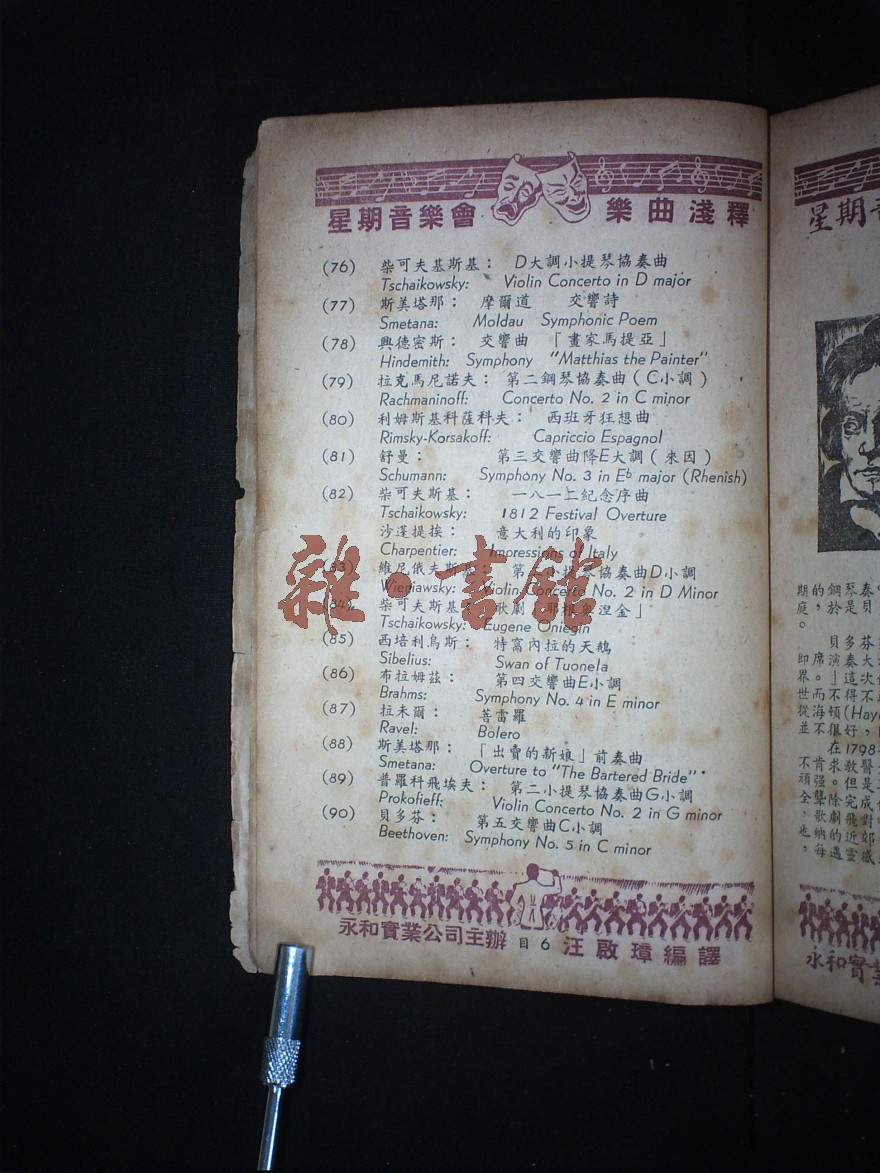 星期音樂會 樂曲淺釋
(76) 柴可夫基斯基： D大調小提琴協奏曲
Tschaikowsky: Violin Concerto in D major
(77) 斯美塔那： 摩爾道 交響詩
Smetana: Moldau Symphonic Poem
(78) 興德密斯： 交響曲 「畫家馬提亞」
Hindemith: Symphony "Matthias the Painter"
(79) 拉克馬尼諾夫： 第二鋼琴協奏曲（C小調）
Rachmaninoff: Concerto No. 2 in C minor
(80) 利姆斯基科薩科夫： 西班牙狂想曲
Rimsky-Korsakoff: Capriccio Espagnol
(81) 舒曼： 第三交響曲降E大調（來因）
Schumann: Symphony No. 3 in E♭ major (Rhenish)
(82) 柴可夫斯基： 一八一二紀念序曲
Tschaikowsky: 1812 Festival Overture
沙蓬提挨： 意大利的印象
Charpentier: Impressions of Italy
(83) 維尼俄夫斯基： 第二小提琴協奏曲D小調
Wieniawsky: Violin Concerto No. 2 in D Minor
(84) 柴可夫斯基： 歌劇「耶根奧涅金」
Tschaikowsky: Eugene Oniegin
(85) 西培利烏斯： 特窩內拉的天鵝
Sibelius: Swan of Tuonela
(86) 布拉姆茲： 第四交響曲E小調
Brahms: Symphony No. 4 in E minor
(87) 拉未爾： 菩雷羅
Ravel: Bolero
(88) 斯美塔那： 「出賣的新娘」前奏曲
Smetana: Overture to "The Bartered Bride"
(89) 普羅科飛埃夫： 第二小提琴協奏曲G小調
Prokofieff: Violin Concerto No. 2 in G minor
(90) 貝多芬： 第五交響曲C小調
Beethoven: Symphony No. 5 in C minor
永和實業公司主辦 目6 汪啟璋編譯
雜·書館
星期音
期的鋼琴奏
庭，於是貝
。
貝多芬
即席演奏大
界。」這次
世而不得不
從海頓(Hay
並不很好，
在1798
不肯求教醫
頑强。但是
全聾除完成
，歌劇飛對
也納的近郊
，每遇靈感
永和實業